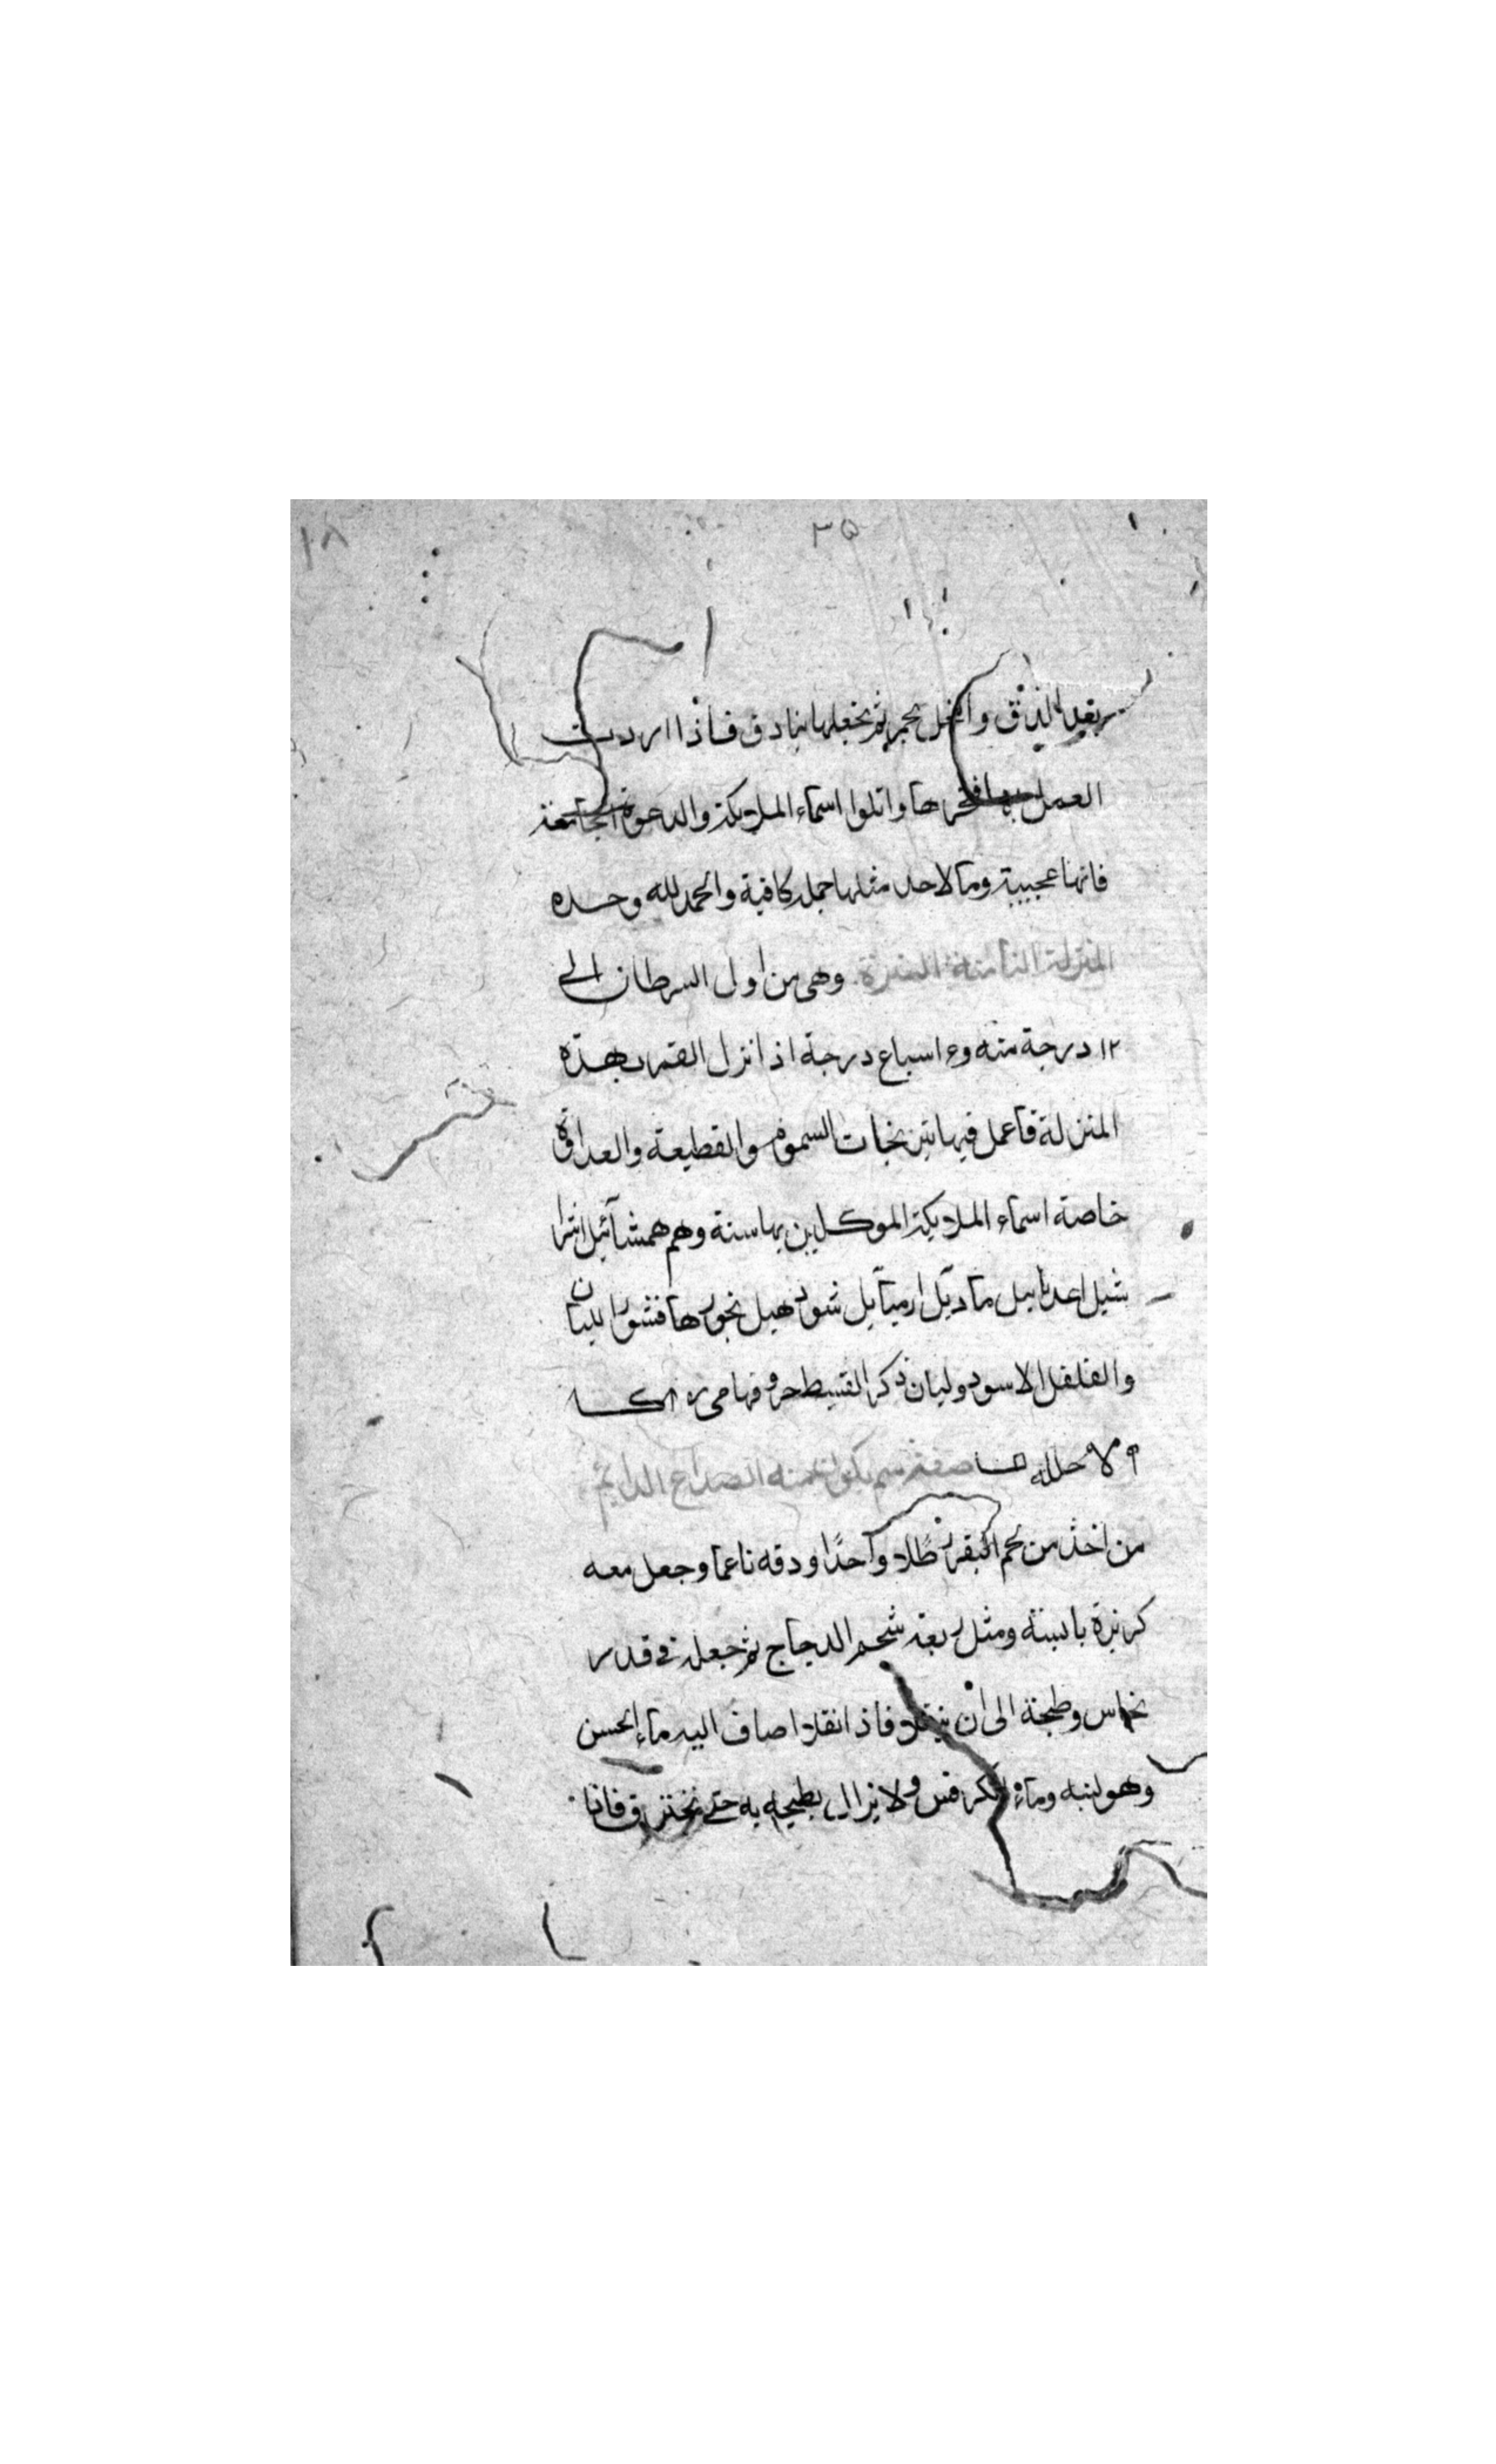 ١٨ ٣٥
بعد الدق والنخل بحجر ثم تجعلها بنادق فاذا اردت
العمل بها فخرها واتلوا اسماء الملايكة والدعوة الجامعة
فانها عجيبة وما لاحد مثلها جملة كافية والحمد لله وحده
المنزلة الثامنة النثرة وهى من اول السرطان الى
١٢ درجة منه و٤ اسباع درجة اذا نزل القمر بهذه
المنزلة فاعمل فيها نيرنجات السموم والقطيعة والعداوة
خاصة اسماء الملايكة الموكلين بها ستة وهم همشائيل
شيل ماديل ارميائيل بخورها قشور لبان
والفلفل الاسود ولبان ذكر القسط حروفها
صفة سم يكون منه الصداع الدايم
من اخذ من لحم البقر رطلا واحدًا ودقه ناعما وجعل معه
كزبرة يابسة ومثل ربعة شحم الدجاج ثم جعله فى قدر
نحاس وطبخة الى ان فاذا اضاف اليه ماء الخس
وهو لبنه وماء الكرفس ولا يزال يطبخه به حتى يحترق فاذا